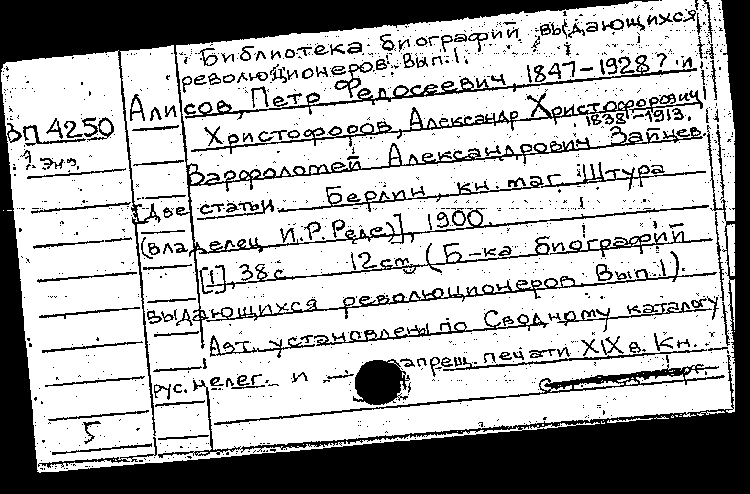 Библиотека биографий выдающихся
революционеров. Вып. 1.
Алисов, Петр Федосеевич, 1847–1928? и
ВП 4250
Христофоров, Александр Христофорович
1838–1913.
2 экз.
Варфоломей Александрович Зайцев
[Две статьи. Берлин, кн. маг. Штура
(владелец И.Р. Реде)], 1900.
[1], 38 с. 12 см (Б-ка биографий
выдающихся революционеров. Вып. 1).
Авт. установлены по Сводному каталогу
рус. нелег. и запрещ. печати XIX в. Кн.
5